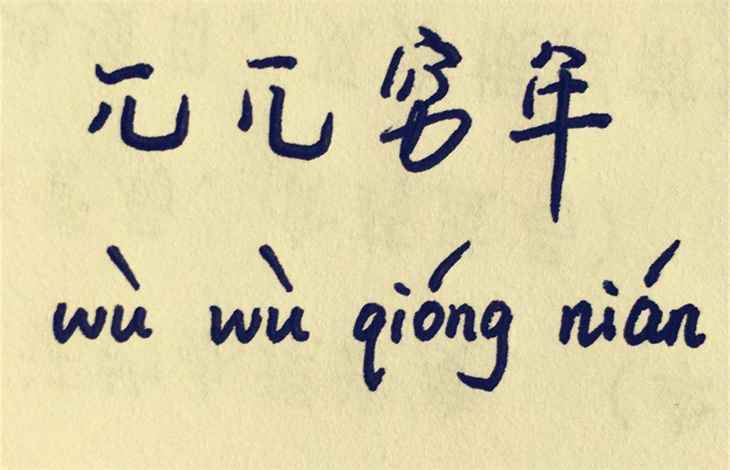 兀兀穷年
wù wù qióng nián